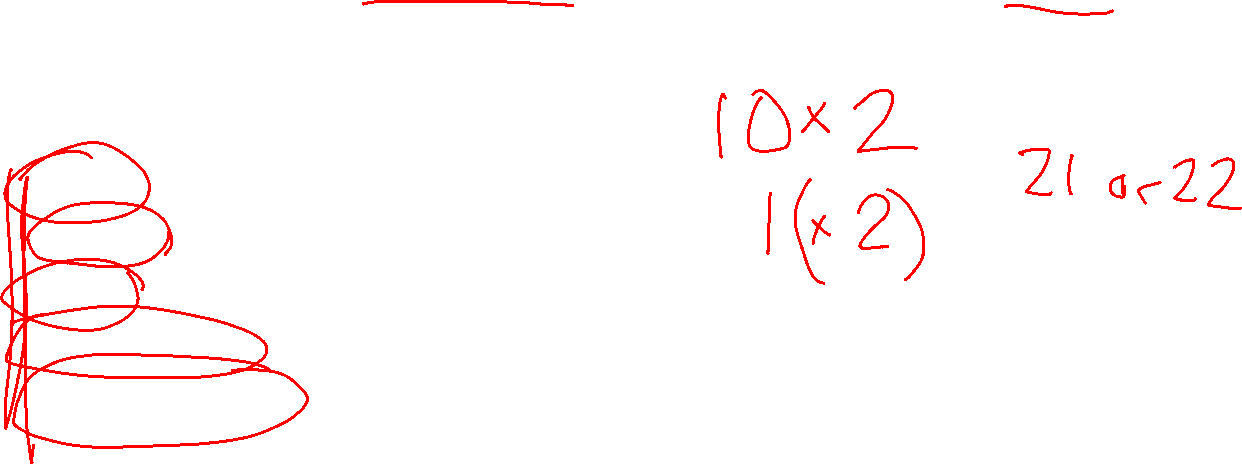 10 × 2
1 (× 2)
21 or 22